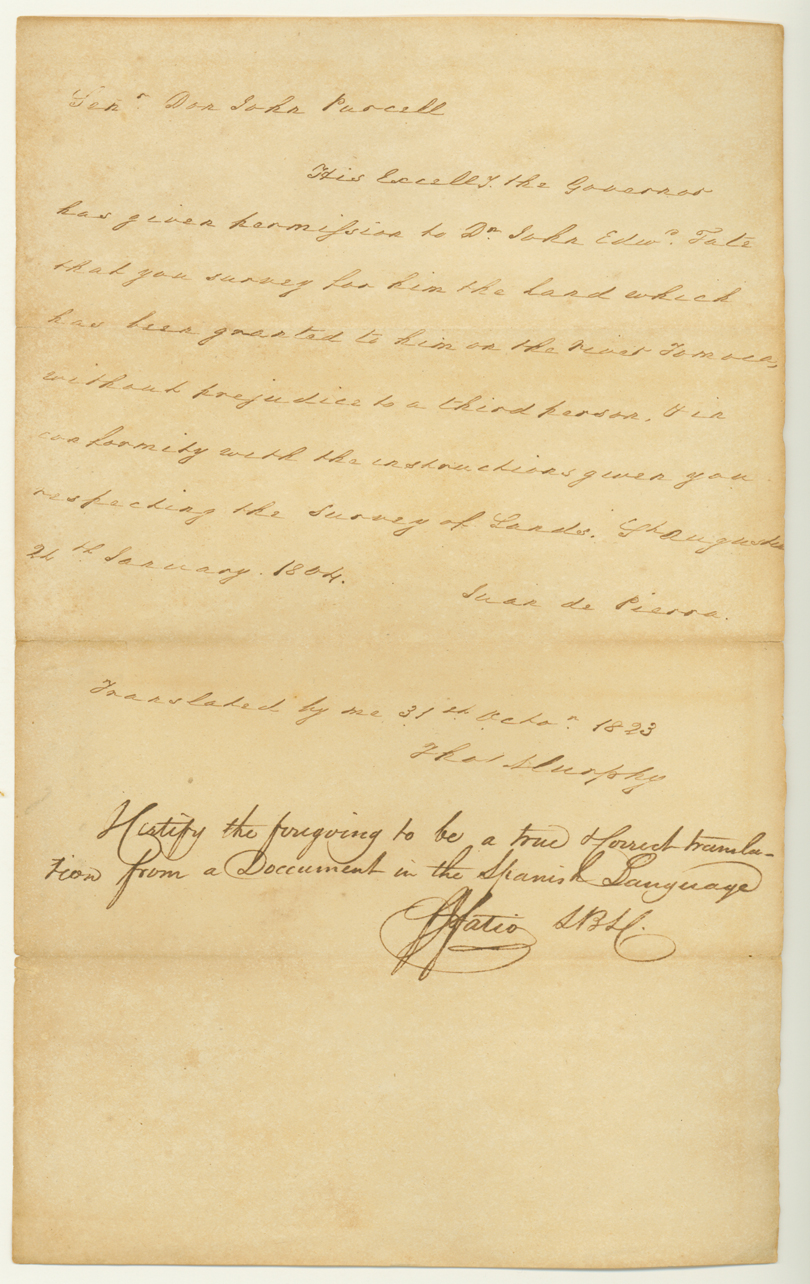 Sen.r Don John Purcell
His Excell.y the Governor
has given permission to Dn. John Edwd. Tate
that you survey for him the land which
has been granted to him on the river Tomoca,
without prejudice to a third person, & in
conformity with the instructions given you
respecting the Survey of Lands. St Augustin
24th January. 1804.
Juan de Pierra.
Translated by me 31st Octo.r 1823
Thos Murphy
I Certify the foregoing to be a true & Correct transla-
tion from a Doccument in the Spanish Language
F J Fatio SBLC.